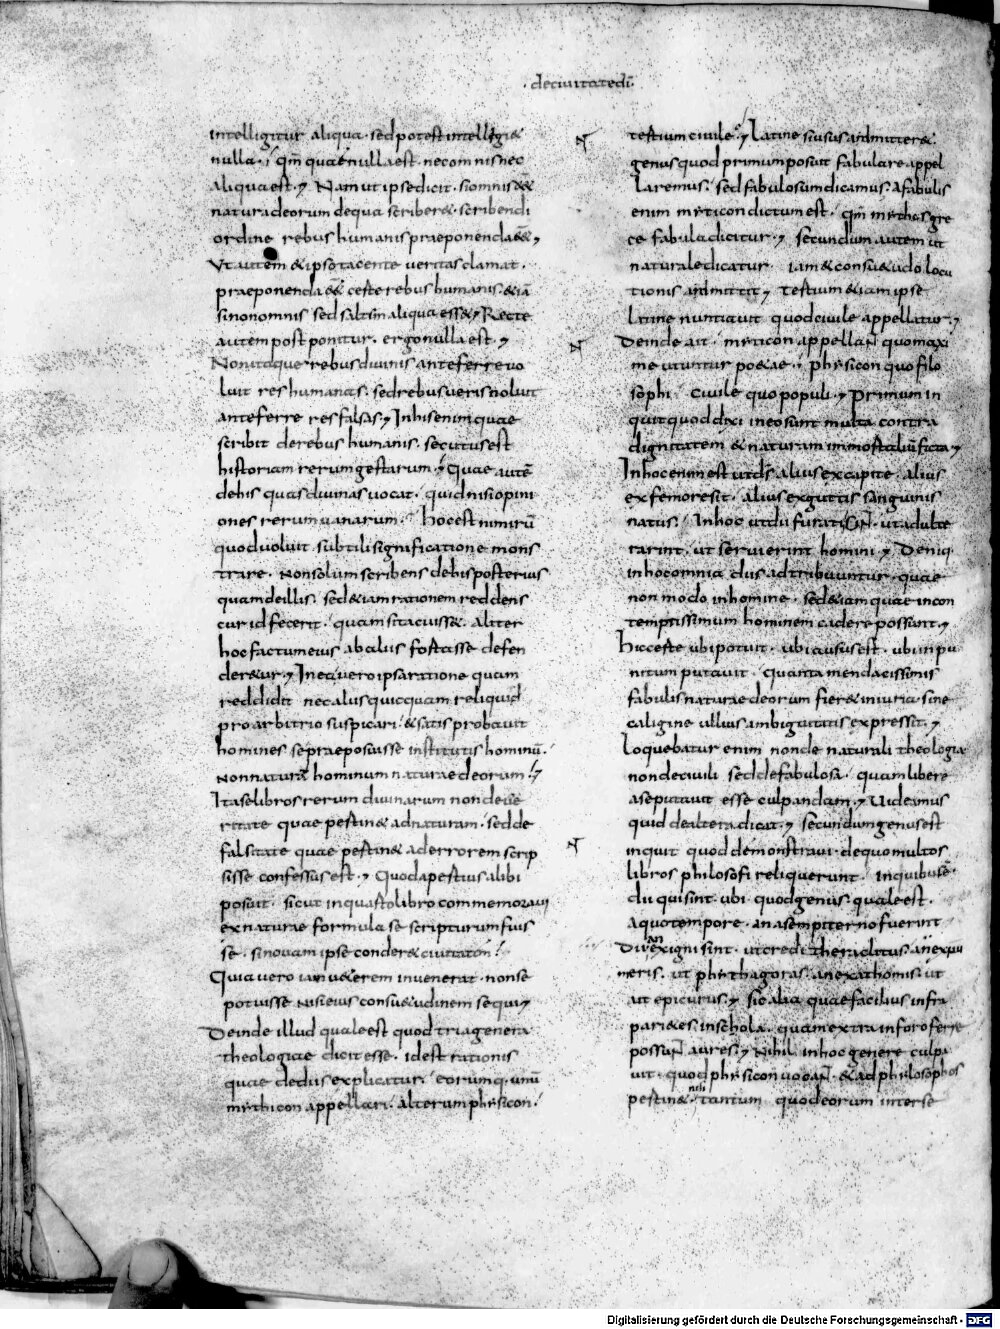 · deciuitatedī·
intelligitur aliqua · sed potest intellegi &
nulla · i qm̄ quae nulla est · nec omnis nec
aliqua est · Nam ut ipse dicit · si omnis ēē&
natura deorum de qua scriber& · scribendi
ordine rebus humanis praeponenda ēē&
Ut autem & ipso tacente ueritas clamat ·
praeponenda ēē& certe rebus humanis · & iā
si non omnis sed saltim aliqua ess& · Recte
autem postponitur · ergo nulla est ·
Non itaque rebus diuinis anteferre uo
luit res humanas · sed rebus ueris noluit
anteferre res falsas · In his enim quae
scribit de rebus humanis · secutus est
historiam rerum gestarum · Quae autē
de his quas diuinas uocat · quid nisi opini
ones rerum uanarum · hoc est nimirū
quod uoluit · subtili significatione mons
trare · Non solum scribens de his posterius
quam de illis · sed & iam rationem reddens
cur id fecerit · quam si tacuiss& · aliter
hoc factum eius ab aliis fortasse defen
der&ur · In ea uero ipsa ratione quam
reddidit nec aliis quicquam reliquid
pro arbitrio suspicari · & satis probauit
homines se praeposuisse institutis hominū ·
Non naturā hominum naturae deorum ·
Ita se libros rerum diuinarum non de ue
ritate quae pertin& ad naturam · sed de
falsitate quae pertin& ad errorem scrip
sisse confessus est · Quod apertius alibi
posuit · sicut in quarto libro commemoraui
ex naturae formula se scripturum fuis
se · si nouam ipse conder& ciuitatem ·
Quia uero iam ueterem inuenerat · non se
potuisse nisi eius consu&udinem sequi
Deinde illud quale est quod tria genera
theologiae dicit esse · id est rationis
quae de diis explicatur · eorumq· unū
mythicon appellari · alterum physicon ·
tertium ciuile · Latine si usus admitter&
genus quod primum posuit fabulare appel
laremus · sed fabulosum dicamus · A fabulis
enim myticon dictum est · qm̄ mythos gre
ce fabula dicitur · secundum autem ut
naturale dicatur iam & consu&udo locu
tionis admittit · tertium & iam ipse
latine nuntiauit quod ciuile appellatur ·
Deinde ait · myticon appellant quo maxi
me utuntur po&ae · physicon quo filo
sophi · ciuile quo populi · Primum in
quit quod dixi in eo sunt multa contra
dignitatem & naturam immortaliū ficta
In hoc enim est ut d̄s alius ex capite · alius
ex femore sit · alius ex guttis sanguinis
natus · In hoc ut dii furati sint · ut adulte
rarint · ut seruierint homini · Deniq·
in hoc omnia diis adtribuuntur · quae
non modo in homine · sed & iam quae in con
temptissimum hominem cadere possunt ·
Hic certe ubi potuit · ubi ausus est · ubi inpu
nitum putauit · quanta mendacissimis
fabulis naturae deorum fier& iniuria · sine
caligine ullius ambiguitatis expressit ·
Loquebatur enim non de naturali theologia
non de ciuili sed de fabulosa · quam libere
a se putauit esse culpandam · Uideamus
quid de altera dicat · secundum genus est
inquit quod demonstraui · de quo multos
libros philosofi reliquerunt · in quibus ē
dii qui sint · ubi · quod genus · quale est ·
a quo tempore · an a sempiterno fuerint
Diu an ex igni sint · ut credit heraclitus · an ex nu
meris · ut phythagoras · an ex athomis · ut
ait epicurus · sic alia quae facilius infra
pari&es in schola · quam extra in foro ferre
possunt aures · Nihil in hoc genere culpa
uit · quod physicon uocant · & ad philosophos
pertin& · nisi tantum quod eorum inter se
Digitalisierung gefördert durch die Deutsche Forschungsgemeinschaft - DFG